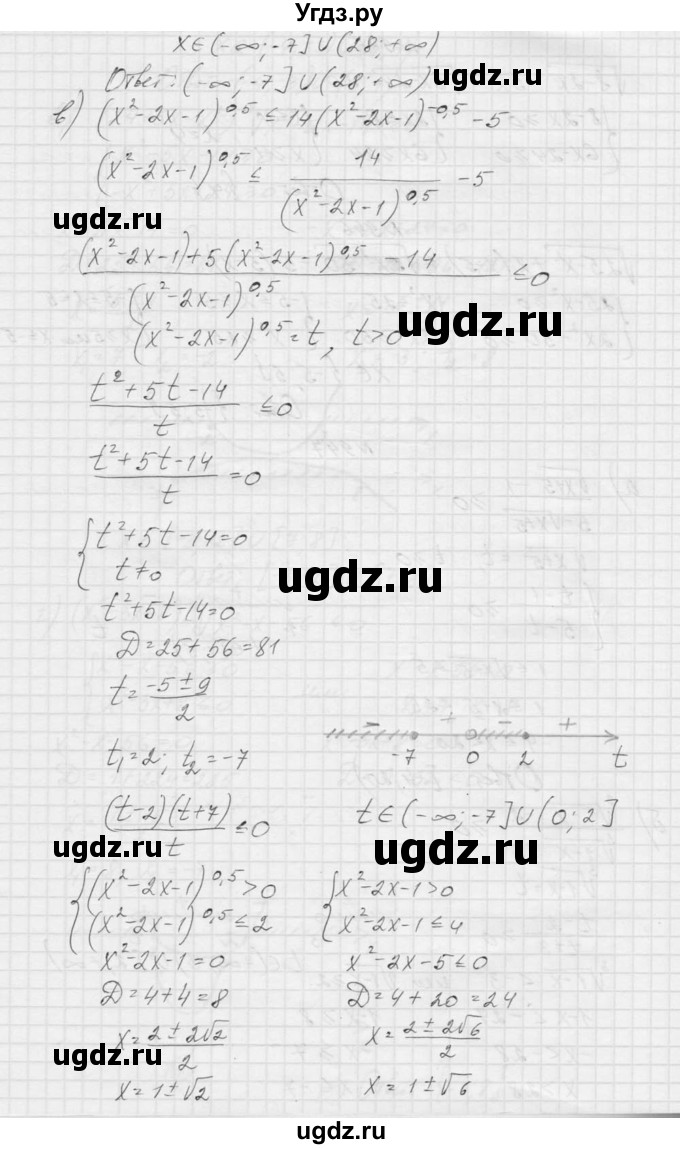 Угдз.ру
x∈(-∞;-7]∪(28;+∞)
Ответ: (-∞;-7]∪(28;+∞)
ugdz.ru
в) (x²-2x-1)^0,5 ≤ 14(x²-2x-1)^-0,5 -5
(x²-2x-1)^0,5 ≤ 14/(x²-2x-1)^0,5 -5
ugdz.ru
((x²-2x-1)+5(x²-2x-1)^0,5 -14)/(x²-2x-1)^0,5 ≤0
(x²-2x-1)^0,5=t, t>0
ugdz.ru
(t²+5t-14)/t ≤0
(t²+5t-14)/t =0
{t²+5t-14=0
t≠0
ugdz.ru
t²+5t-14=0
D=25+56=81
t=(-5±9)/2
- + - +
-7 0 2 t
t₁=2; t₂=-7
(t-2)(t+7)/t ≤0
t∈(-∞;-7]∪(0;2]
ugdz.ru
ugdz.ru
{(x²-2x-1)^0,5>0
(x²-2x-1)^0,5≤2
{x²-2x-1>0
x²-2x-1≤4
x²-2x-1=0
D=4+4=8
x=(2±2√2)/2
x=1±√2
x²-2x-5≤0
D=4+20=24
x=(2±2√6)/2
x=1±√6
ugdz.ru
ugdz.ru
ugdz.ru